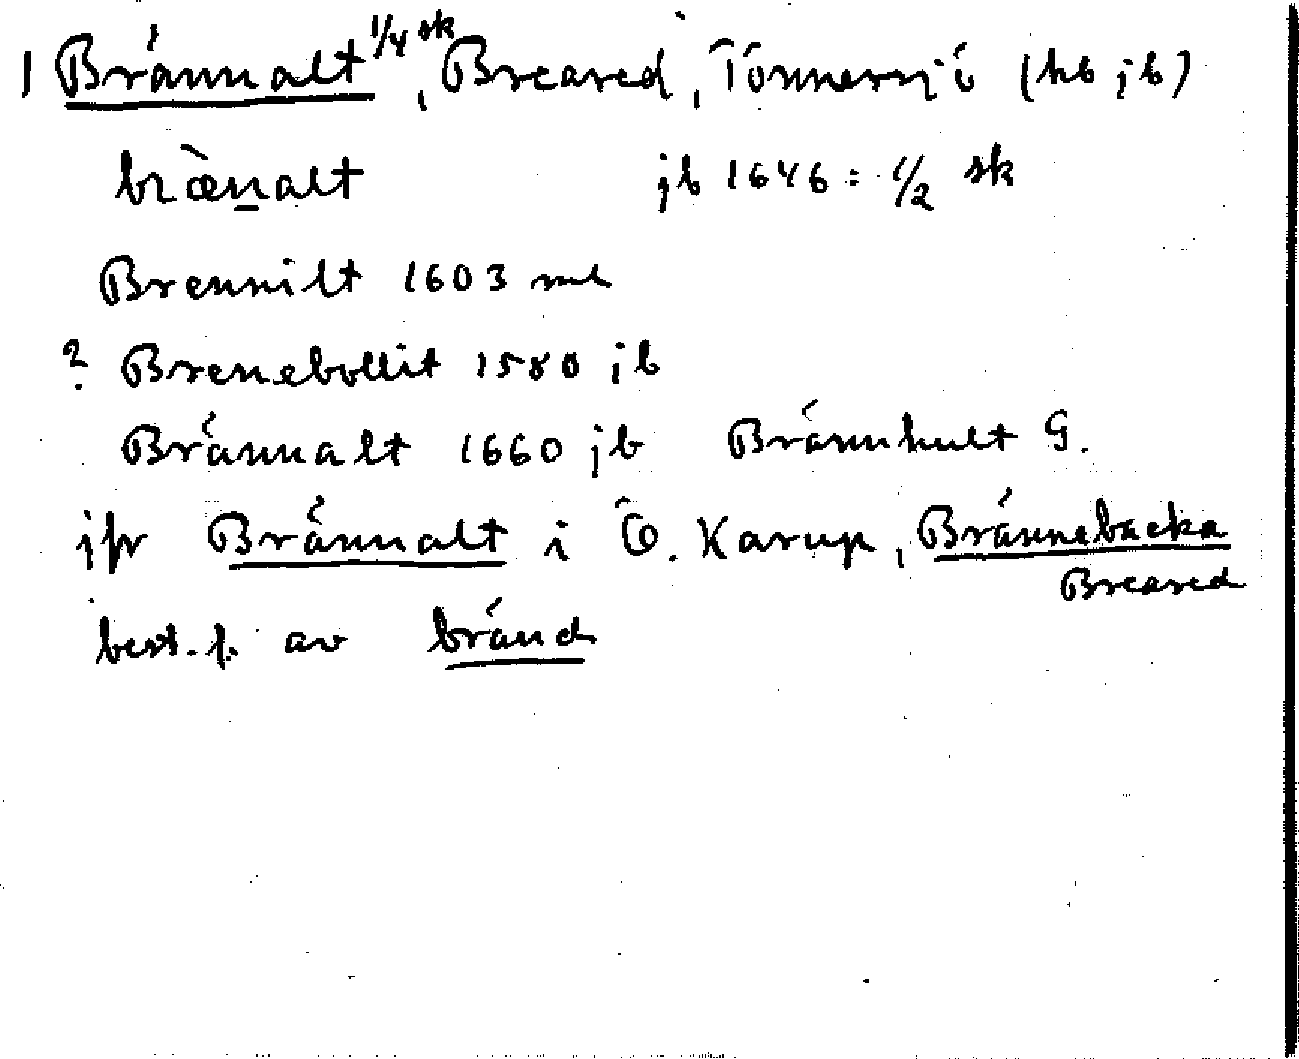 1 Brännalt 1/4 sk, Breared, Tönnersjö (hb jb)
bræ̀nalt jb 1646: 1/2 sk
Brennilt 1603 ml
? Brenebollit 1580 jb
Brännalt 1660 jb Brännhult G.
jfr Brännalt i Ö. Karup, Brännebacka
Breared
best. f. av bränd